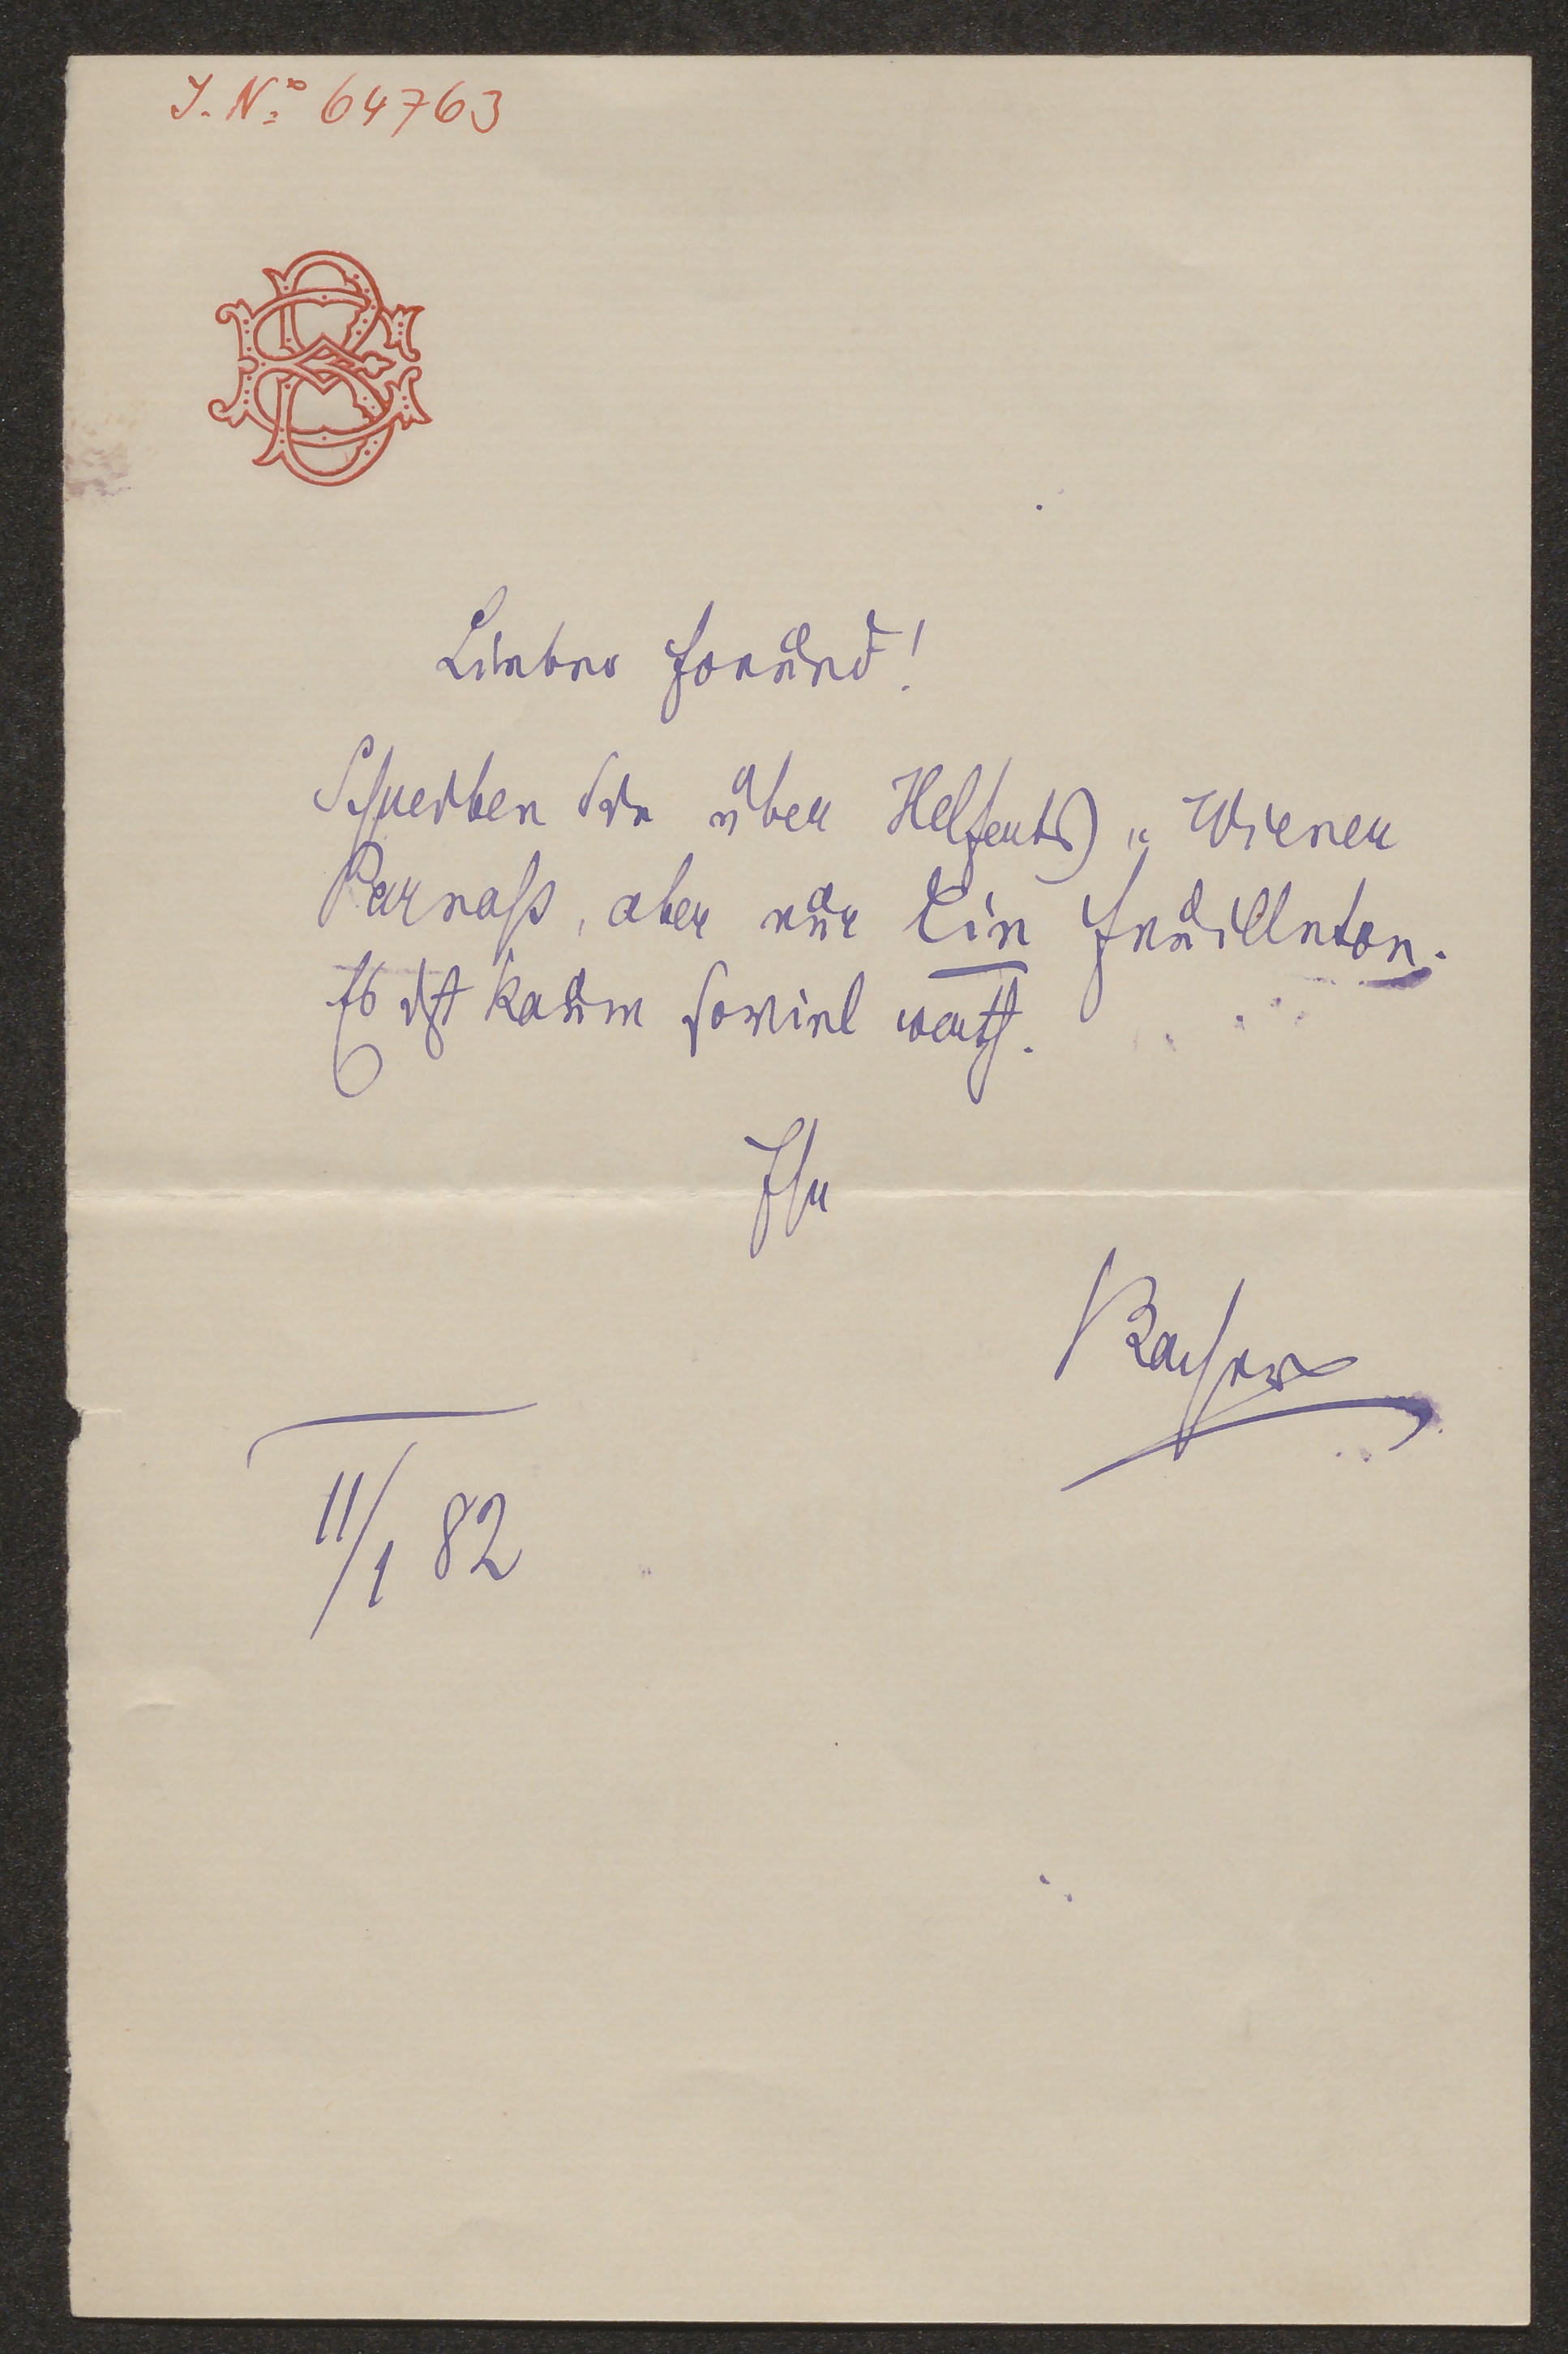 J. No: 64763
Lieber Freund!
Schreiben Sie über Helferts „Wiener
Parnaß, aber nur Ein Feuilleton.
Es ist kaum soviel werth.
Ihr
Bacher
11/1 82